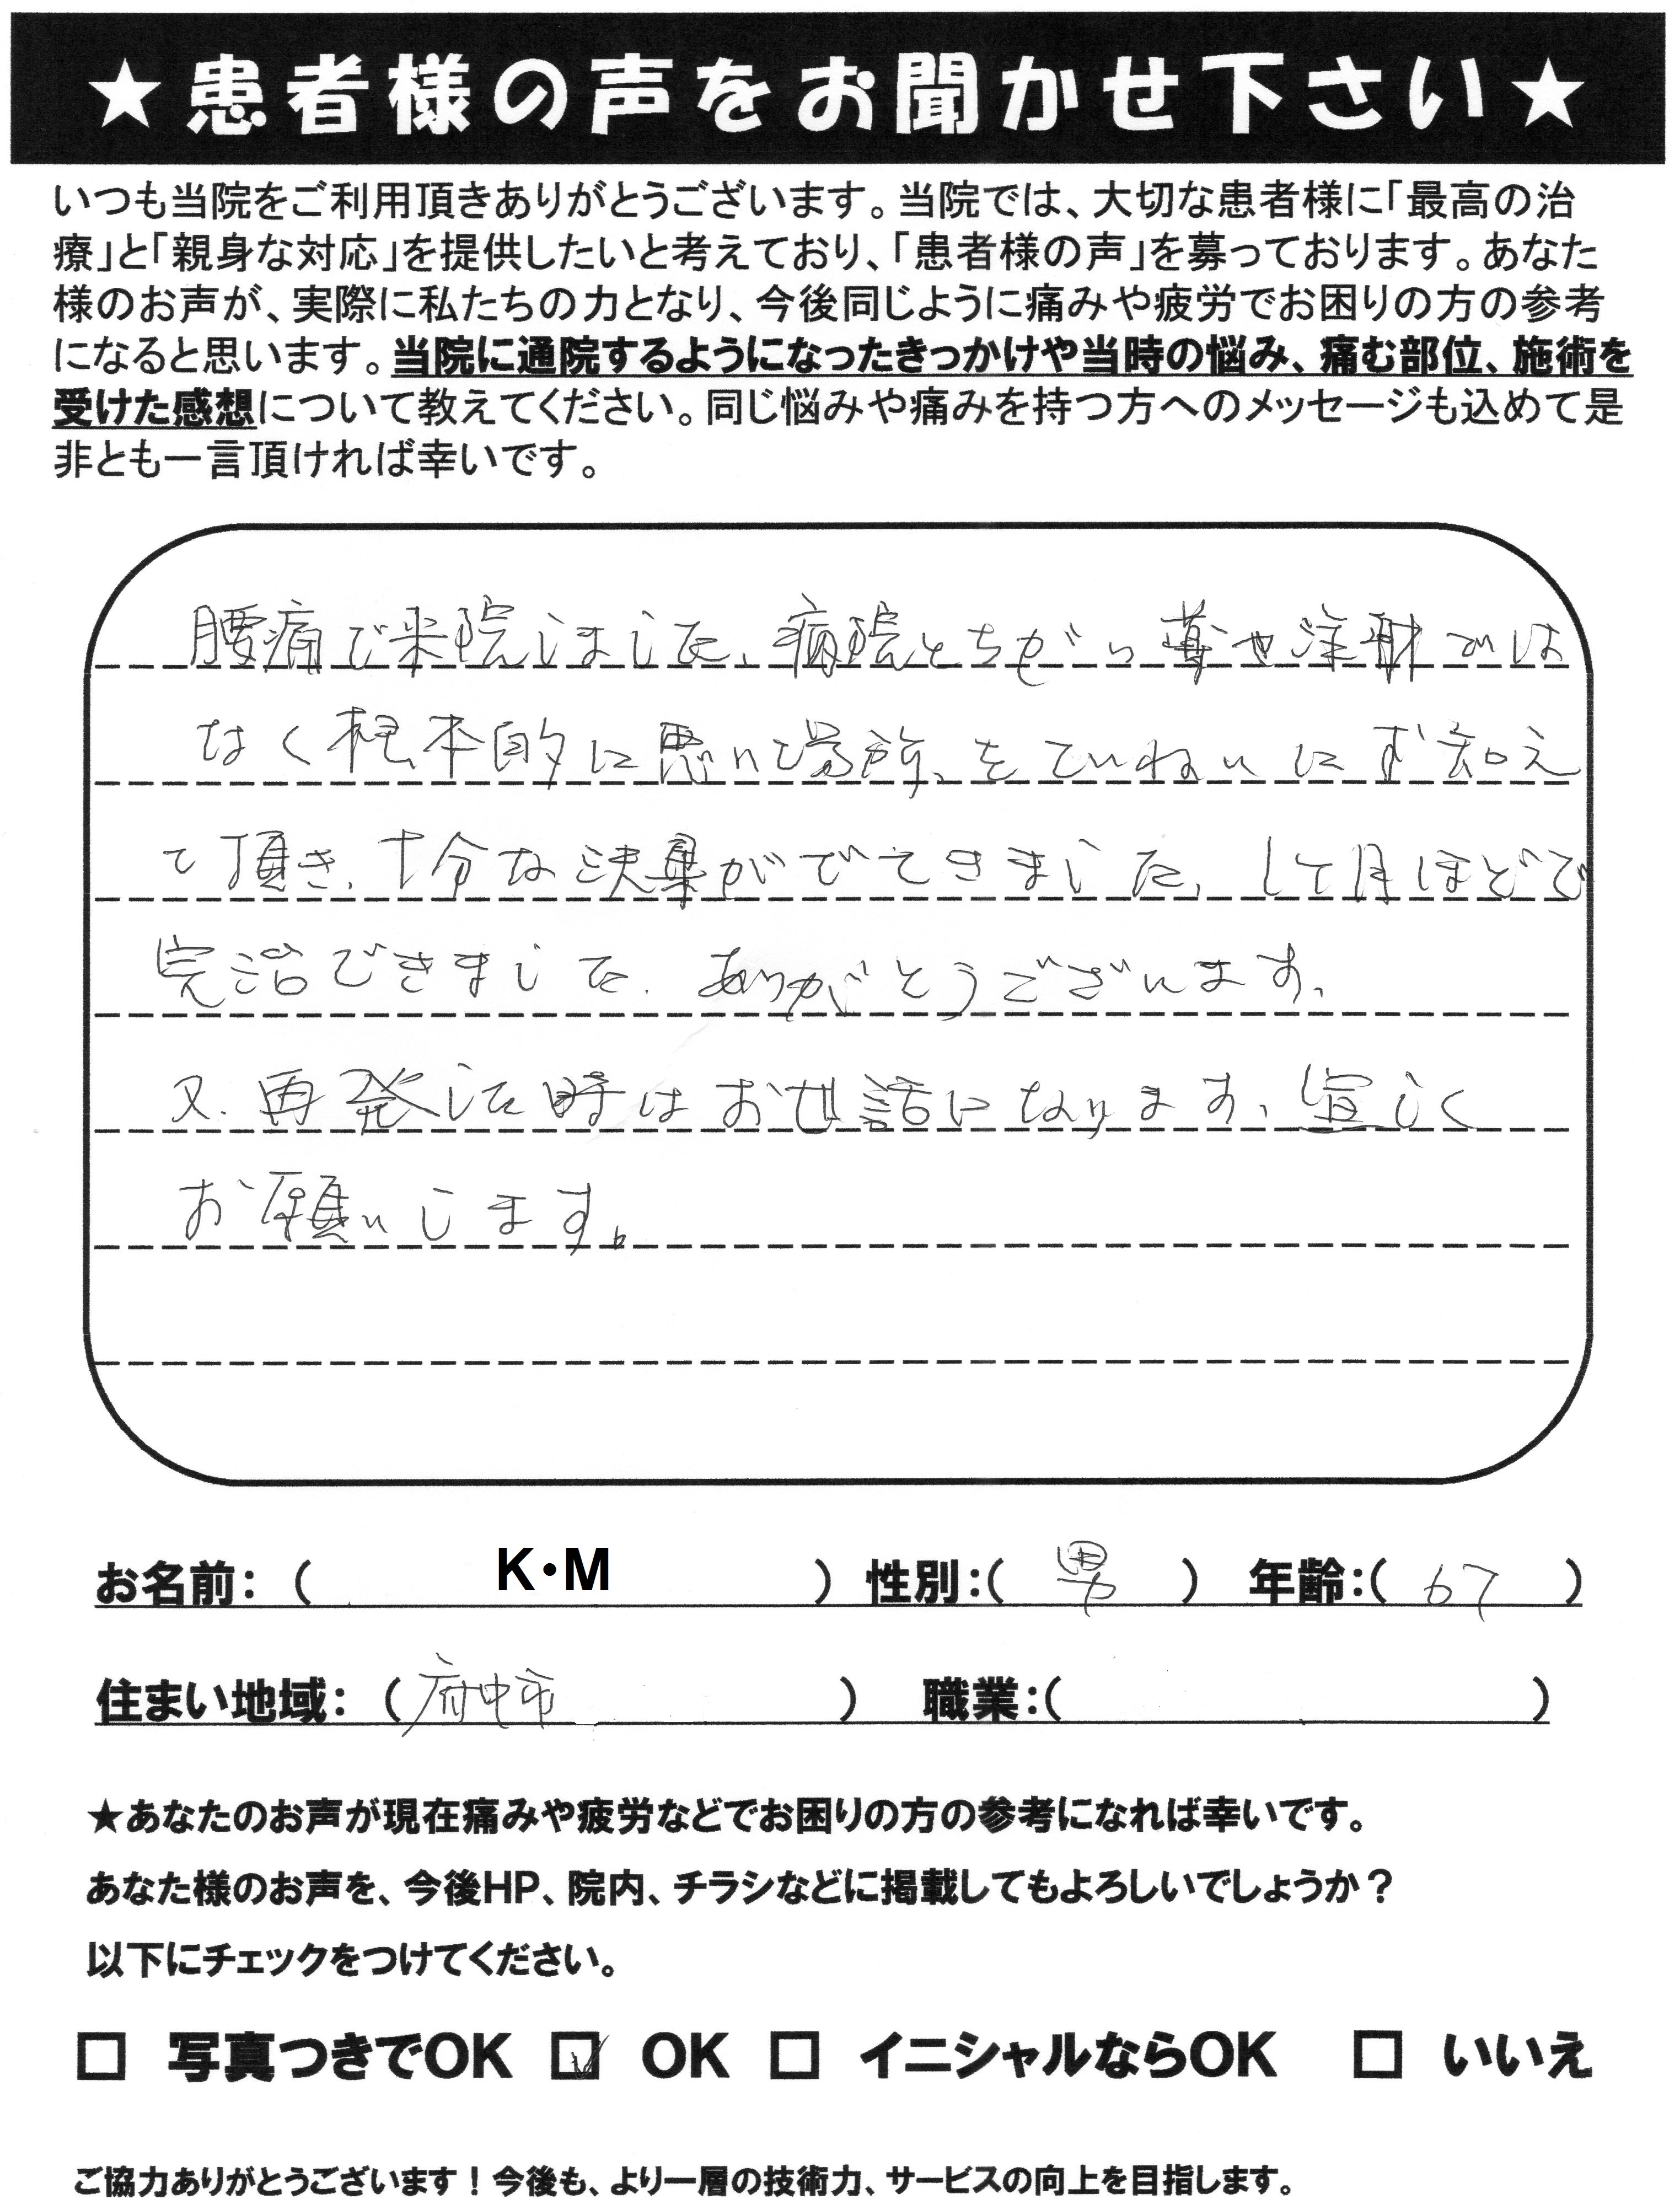 ★患者様の声をお聞かせ下さい★
いつも当院をご利用頂きありがとうございます。当院では、大切な患者様に「最高の治
療」と「親身な対応」を提供したいと考えており、「患者様の声」を募っております。あなた
様のお声が、実際に私たちの力となり、今後同じように痛みや疲労でお困りの方の参考
になると思います。当院に通院するようになったきっかけや当時の悩み、痛む部位、施術を
受けた感想について教えてください。同じ悩みや痛みを持つ方へのメッセージも込めて是
非とも一言頂ければ幸いです。
腰痛で来院しました、病院とちがい薬や注射では
なく根本的に悪い場所、をていねいにお知え
て頂き、十分な決果がでてきました、1ケ月ほどで
完治できました.ありがとうございます、
又、再発した時はお世話になります、宜しく
お願いします。
お名前：（ K・M ） 性別：（ 男 ） 年齢：（ 67 ）
住まい地域：（府中市 ） 職業：（ ）
★あなたのお声が現在痛みや疲労などでお困りの方の参考になれば幸いです。
あなた様のお声を、今後HP、院内、チラシなどに掲載してもよろしいでしょうか？
以下にチェックをつけてください。
□ 写真つきでOK ☑ OK □ イニシャルならOK □ いいえ
ご協力ありがとうございます！今後も、より一層の技術力、サービスの向上を目指します。